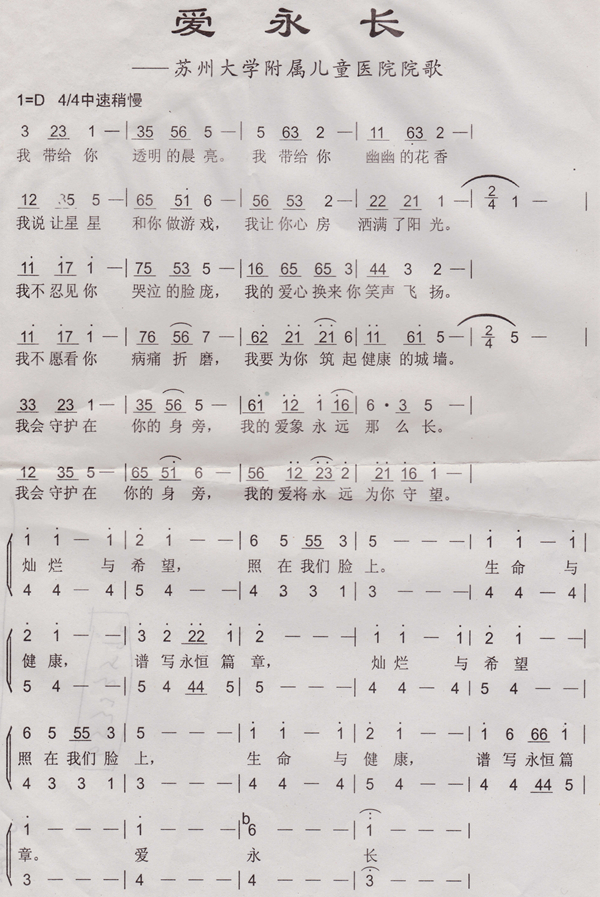 爱永长
——苏州大学附属儿童医院院歌
1=D 4/4中速稍慢
3 23 1 —|35 56 5 —|5 63 2 —|11 63 2 —|
我 带给 你 透明的晨 亮。 我 带给 你 幽幽的花 香
12 35 5 —|65 51 6 —|56 53 2 —|22 21 1 —|2/4 1 —|
我说让星 星 和你做游 戏， 我让你心 房 洒满了阳 光。
11 17 1 —|75 53 5 —|16 65 65 3|44 3 2 —|
我不忍见 你 哭泣的脸 庞， 我的爱心换来你笑声飞 扬。
11 17 1 —|76 56 7 —|62 21 21 6|11 61 5 —|2/4 5 —|
我不愿看 你 病痛折 磨， 我要为你 筑起健康的城 墙。
33 23 1 —|35 56 5 —|61 12 1 16|6 · 3 5 —|
我会守护 在 你的身 旁， 我的爱象永远 那 么 长。
12 35 5 —|65 51 6 —|56 12 23 2|21 16 1 —|
我会守护 在 你的身 旁， 我的爱将永 远 为你守 望。
1 1 — 1|2 1 — —|6 5 55 3|5 — — —|1 1 — 1|
灿 烂 与 希 望， 照 在 我们 脸 上。 生 命 与
4 4 — 4|5 4 — —|4 3 3 1|3 — — —|4 4 — 4|
2 1 — —|3 2 22 1|2 — — —|1 1 — 1|2 1 — —|
健 康， 谱 写 永恒 篇 章， 灿 烂 与 希 望
5 4 — —|5 4 44 5|5 — — —|4 4 — 4|5 4 — —|
6 5 55 3|5 — — —|1 1 — 1|2 1 — —|1 6 66 1|
照 在 我们 脸 上， 生 命 与 健 康， 谱 写 永恒 篇
4 3 3 1|3 — — —|4 4 — 4|5 4 — —|4 4 44 5|
1 — — —|1 — — —|b6 — — —|1 — — —|
章。 爱 永 长
3 — — —|4 — — —|4 — — —|3 — — —|